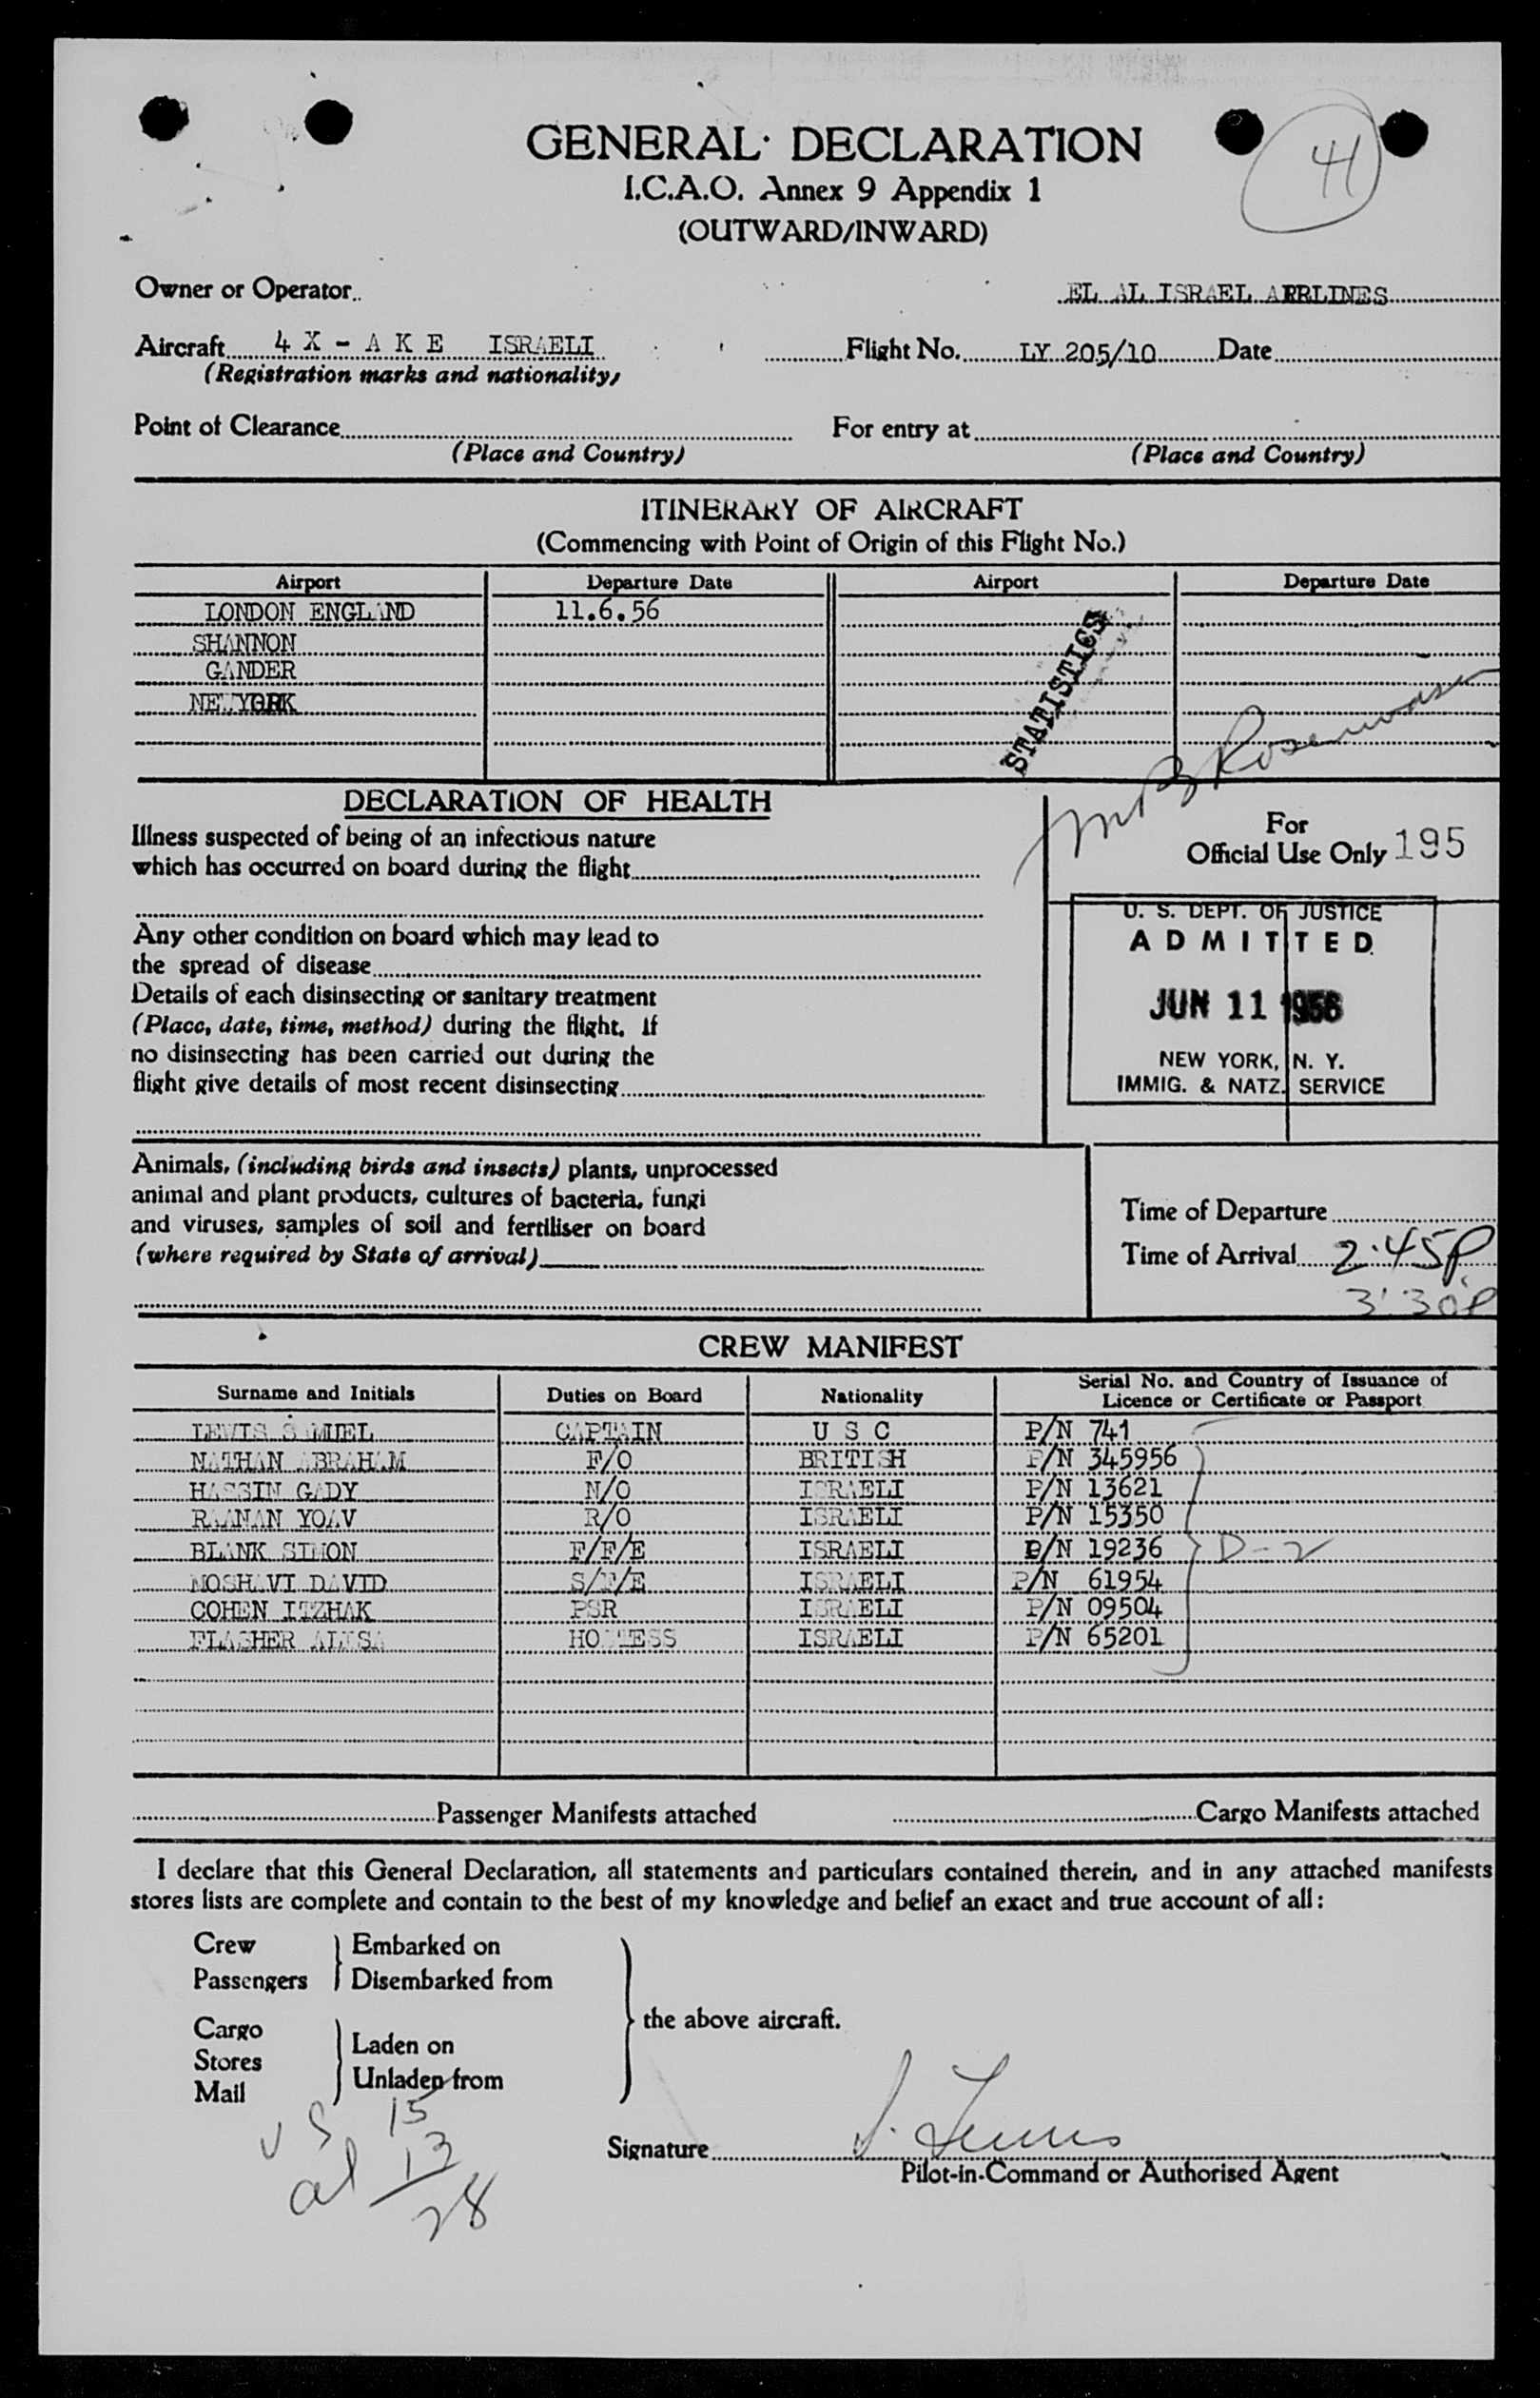 GENERAL DECLARATION
41
I.C.A.O. Annex 9 Appendix 1
(OUTWARD/INWARD)
Owner or Operator EL AL ISRAEL AERLINES
Aircraft 4 X - A K E ISRAELI Flight No. LY 205/10 Date
(Registration marks and nationality)
Point of Clearance For entry at
(Place and Country) (Place and Country)
ITINERARY OF AIRCRAFT
(Commencing with Point of Origin of this Flight No.)
Airport Departure Date Airport Departure Date
LONDON ENGLAND 11.6.56
SHANNON
GANDER
NEW YORK
STATISTICS
DECLARATION OF HEALTH
Illness suspected of being of an infectious nature
which has occurred on board during the flight
Any other condition on board which may lead to
the spread of disease
Details of each disinsecting or sanitary treatment
(Place, date, time, method) during the flight. If
no disinsecting has been carried out during the
flight give details of most recent disinsecting
For
Official Use Only 195
U. S. DEPT. OF JUSTICE
ADMITTED
JUN 11 1956
NEW YORK, N. Y.
IMMIG. & NATZ. SERVICE
Animals, (including birds and insects) plants, unprocessed
animal and plant products, cultures of bacteria, fungi
and viruses, samples of soil and fertiliser on board
(where required by State of arrival)
Time of Departure
Time of Arrival 2.45P
3:30P
CREW MANIFEST
Surname and Initials Duties on Board Nationality Serial No. and Country of Issuance of
Licence or Certificate or Passport
LEWIS SAMUEL CAPTAIN U S C P/N 741
NATHAN ABRAHAM F/O BRITISH P/N 345956
HASSIN GADY N/O ISRAELI P/N 13621
RAANAN YOAV R/O ISRAELI P/N 15350
BLANK SIMON F/F/E ISRAELI P/N 19236 D-2
MOSHAVI DAVID S/F/E ISRAELI P/N 61954
COHEN ITZHAK PSR ISRAELI P/N 09504
FLASHER ALISA HOSTESS ISRAELI P/N 65201
Passenger Manifests attached Cargo Manifests attached
I declare that this General Declaration, all statements and particulars contained therein, and in any attached manifests
stores lists are complete and contain to the best of my knowledge and belief an exact and true account of all:
Crew Embarked on
Passengers Disembarked from
the above aircraft.
Cargo
Stores Laden on
Mail Unladen from
US 15
al 13
28
Signature S. Lewis
Pilot-in-Command or Authorised Agent